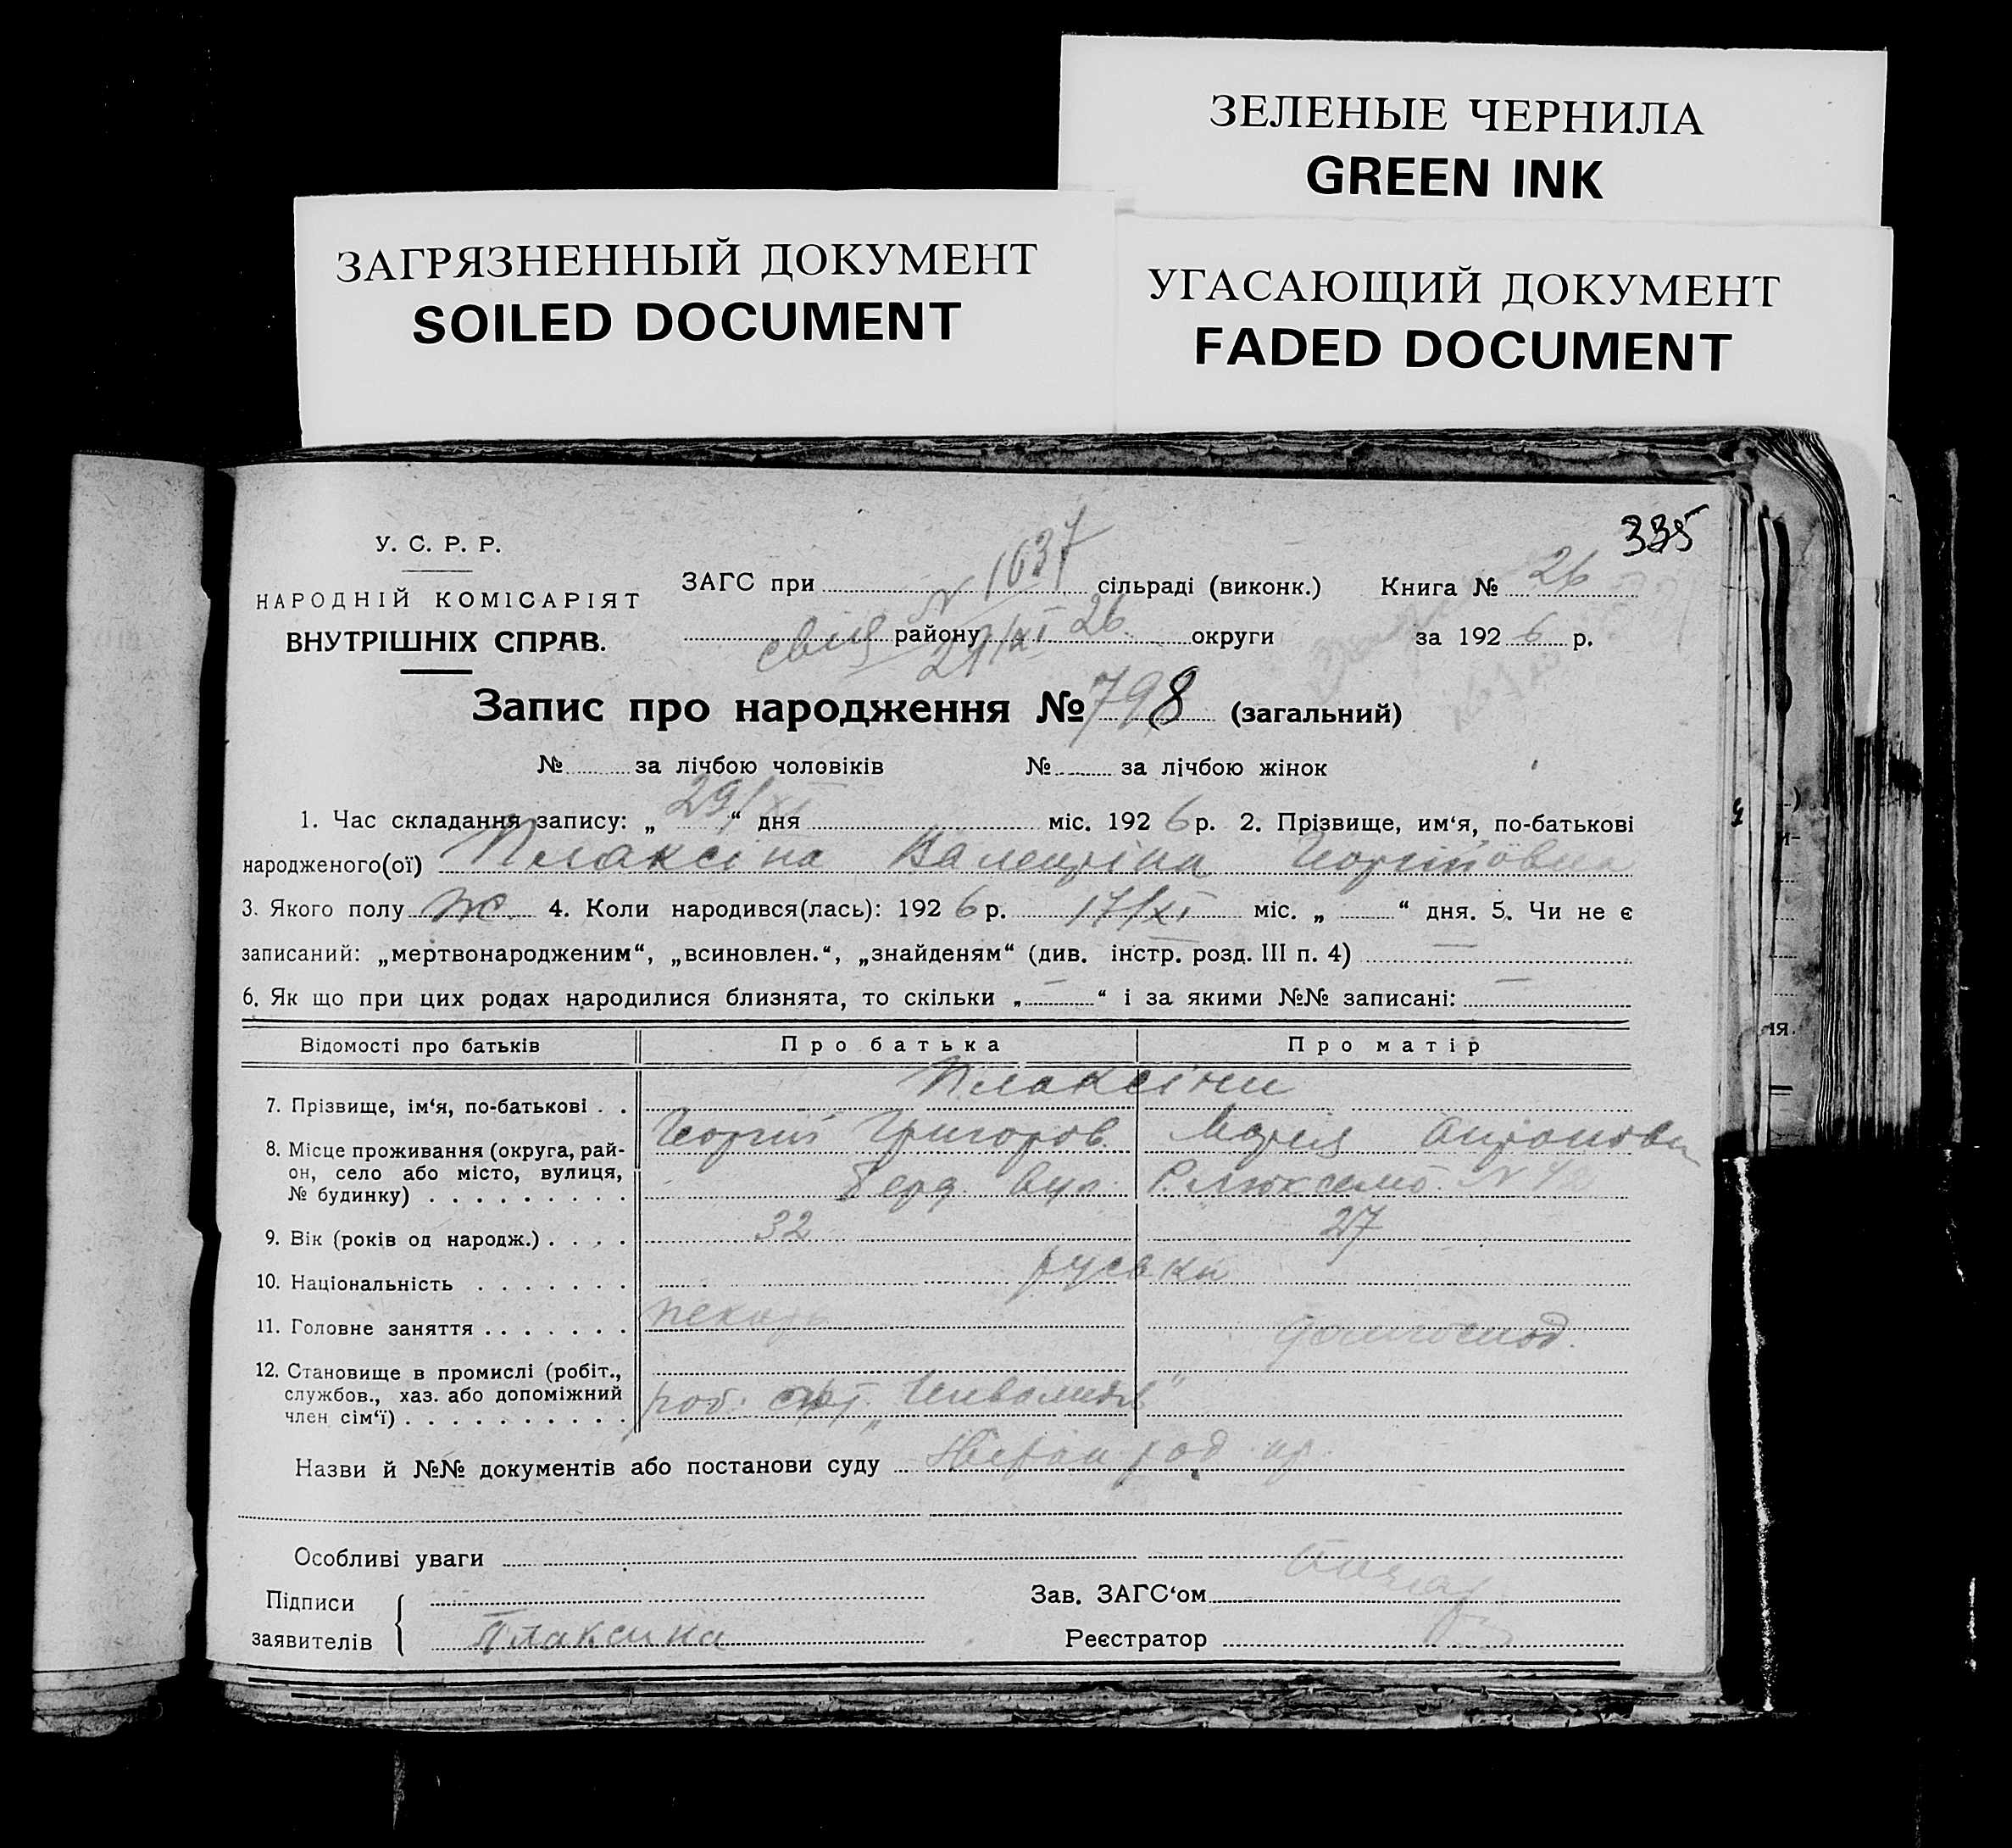 ЗЕЛЕНЫЕ ЧЕРНИЛА
GREEN INK
ЗАГРЯЗНЕННЫЙ ДОКУМЕНТ
SOILED DOCUMENT
УГАСАЮЩИЙ ДОКУМЕНТ
FADED DOCUMENT
335
У. С. Р. Р.
НАРОДНІЙ КОМІСАРІЯТ
ВНУТРІШНІХ СПРАВ.
ЗАГС при № 1637 сільраді (виконк.) Книга № 26
району 29/XI 26 округи за 1926 р.
Запис про народження № 798 (загальний)
№ за лічбою чоловіків № за лічбою жінок
1. Час складання запису: „29/XI“ дня міс. 1926 р. 2. Прізвище, им‘я, по-батькові
народженого(ої) Плаксіна Валентіна Георгіївна
3. Якого полу ж. 4. Коли народився(лась): 1926 р. 17/XI міс. „ “ дня. 5. Чи не є
записаний: „мертвонародженим“, „всиновлен.“, „знайденям“ (див. інстр. розд. III п. 4) —
6. Як що при цих родах народилися близнята, то скільки „—“ і за якими №№ записані: —
Відомості про батьків Про батька Про матір
Плаксіни
7. Прізвище, ім‘я, по-батькові . .
Георгій Григоров. Марія Антоновн
8. Місце проживання (округа, рай-
он, село або місто, вулиця,
№ будинку) . . . . . . . . . Берд. вул. Р. Люксемб. №
9. Вік (років од народж.) . . . . 32 27
10. Національність . . . . . . .
11. Головне заняття . . . . . . . пекарь домгоспод.
12. Становище в промислі (робіт.,
службов., хаз. або допоміжний
член сім‘ї) . . . . . . . . . . роб. арт. „Інвалидів”
Назви й №№ документів або постанови суду
Особливі уваги
Підписи
заявителів Плаксина
Зав. ЗАГС‘ом
Реєстратор